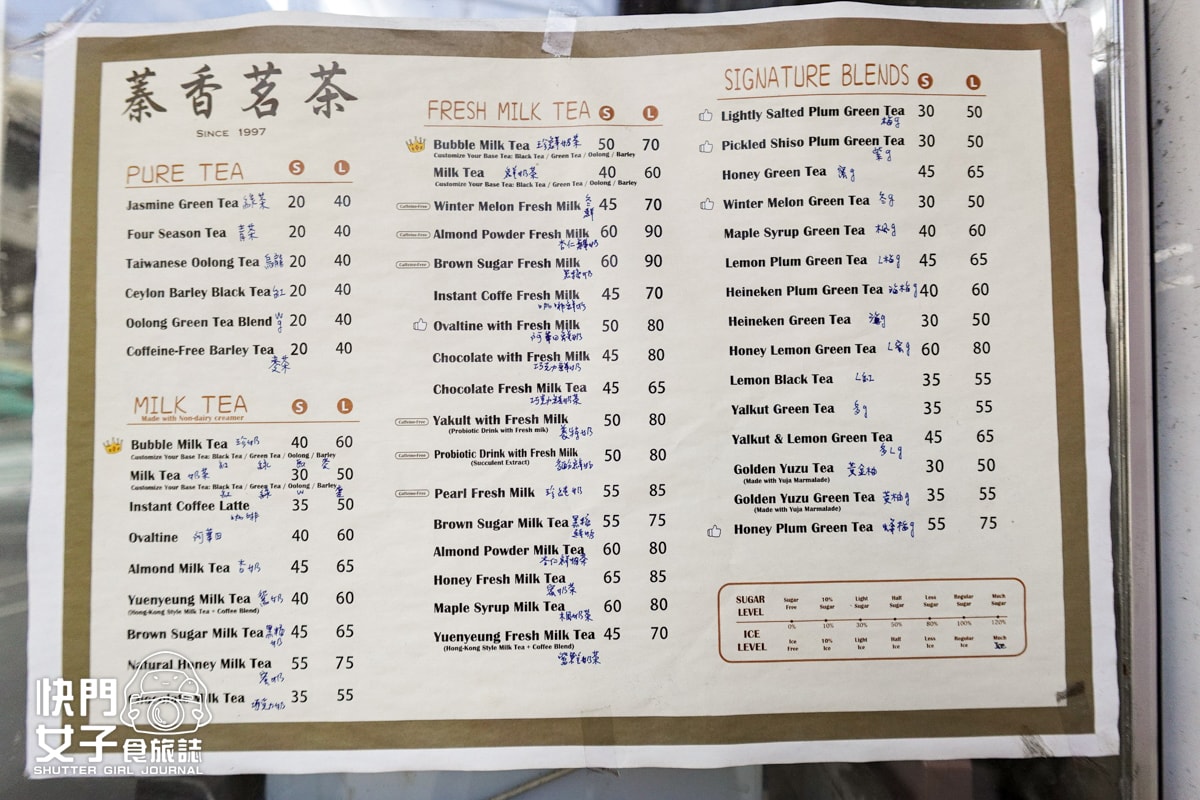 蓁香茗茶
SINCE 1997
PURE TEA S L
Jasmine Green Tea 綠茶 20 40
Four Season Tea 青茶 20 40
Taiwanese Oolong Tea 烏龍 20 40
Ceylon Barley Black Tea 紅 20 40
Oolong Green Tea Blend 20 40
Coffeine-Free Barley Tea 20 40
麥茶
MILK TEA S L
Made with Non-dairy creamer
Bubble Milk Tea 珍奶 40 60
Customize Your Base Tea: Black Tea / Green Tea / Oolong / Barley
紅 綠 烏 麥
Milk Tea 奶茶 30 50
Customize Your Base Tea: Black Tea / Green Tea / Oolong / Barley
紅 綠
Instant Coffee Latte 35 50
咖啡
Ovaltine 阿華田 40 60
Almond Milk Tea 杏奶 45 65
Yuenyeung Milk Tea 鴛奶 40 60
(Hong-Kong Style Milk Tea + Coffee Blend)
Brown Sugar Milk Tea 黑糖奶 45 65
Natural Honey Milk Tea 55 75
蜜奶
Chocolate Milk Tea 35 55
巧克力奶
FRESH MILK TEA S L
Bubble Milk Tea 珍鮮奶茶 50 70
Customize Your Base Tea: Black Tea / Green Tea / Oolong / Barley
Milk Tea 鮮奶茶 40 60
Customize Your Base Tea: Black Tea / Green Tea / Oolong / Barley
Caffeine-Free Winter Melon Fresh Milk 冬鮮 45 70
Caffeine-Free Almond Powder Fresh Milk 60 90
杏仁鮮奶
Caffeine-Free Brown Sugar Fresh Milk 60 90
黑糖奶
Instant Coffe Fresh Milk 45 70
咖啡鮮奶
Ovaltine with Fresh Milk 50 80
阿華田鮮奶
Chocolate with Fresh Milk 45 80
巧克力鮮奶
Chocolate Fresh Milk Tea 45 65
巧克力鮮奶茶
Caffeine-Free Yakult with Fresh Milk 50 80
(Probiotic Drink with Fresh milk)
養特奶
Caffeine-Free Probiotic Drink with Fresh Milk 50 80
(Succulent Extract)
Caffeine-Free Pearl Fresh Milk 珍純奶 55 85
Brown Sugar Milk Tea 黑糖鮮奶 55 75
Almond Powder Milk Tea 60 80
杏仁鮮奶茶
Honey Fresh Milk Tea 65 85
蜜奶茶
Maple Syrup Milk Tea 60 80
楓奶茶
Yuenyeung Fresh Milk Tea 45 70
(Hong-Kong Style Milk Tea + Coffee Blend)
鴛鮮奶茶
SIGNATURE BLENDS S L
Lightly Salted Plum Green Tea 30 50
梅g
Pickled Shiso Plum Green Tea 30 50
紫g
Honey Green Tea 蜜g 45 65
Winter Melon Green Tea 冬g 30 50
Maple Syrup Green Tea 楓g 40 60
Lemon Plum Green Tea L梅g 45 65
Heineken Plum Green Tea 海梅g 40 60
Heineken Green Tea 海g 30 50
Honey Lemon Green Tea L蜜g 60 80
Lemon Black Tea L紅 35 55
Yalkut Green Tea 多g 35 55
Yalkut & Lemon Green Tea 45 65
多Lg
Golden Yuzu Tea 黃金柚 30 50
(Made with Yuja Marmalade)
Golden Yuzu Green Tea 黃柚g 35 55
(Made with Yuja Marmalade)
Honey Plum Green Tea 蜂梅g 55 75
SUGAR LEVEL Sugar Free 10% Sugar Light Sugar Half Sugar Less Sugar Regular Sugar Much Sugar
0% 10% 30% 50% 80% 100% 120%
ICE LEVEL Ice Free 10% Ice Light Ice Half Ice Less Ice Regular Ice Much Ice
快門
女子食旅誌
SHUTTER GIRL JOURNAL